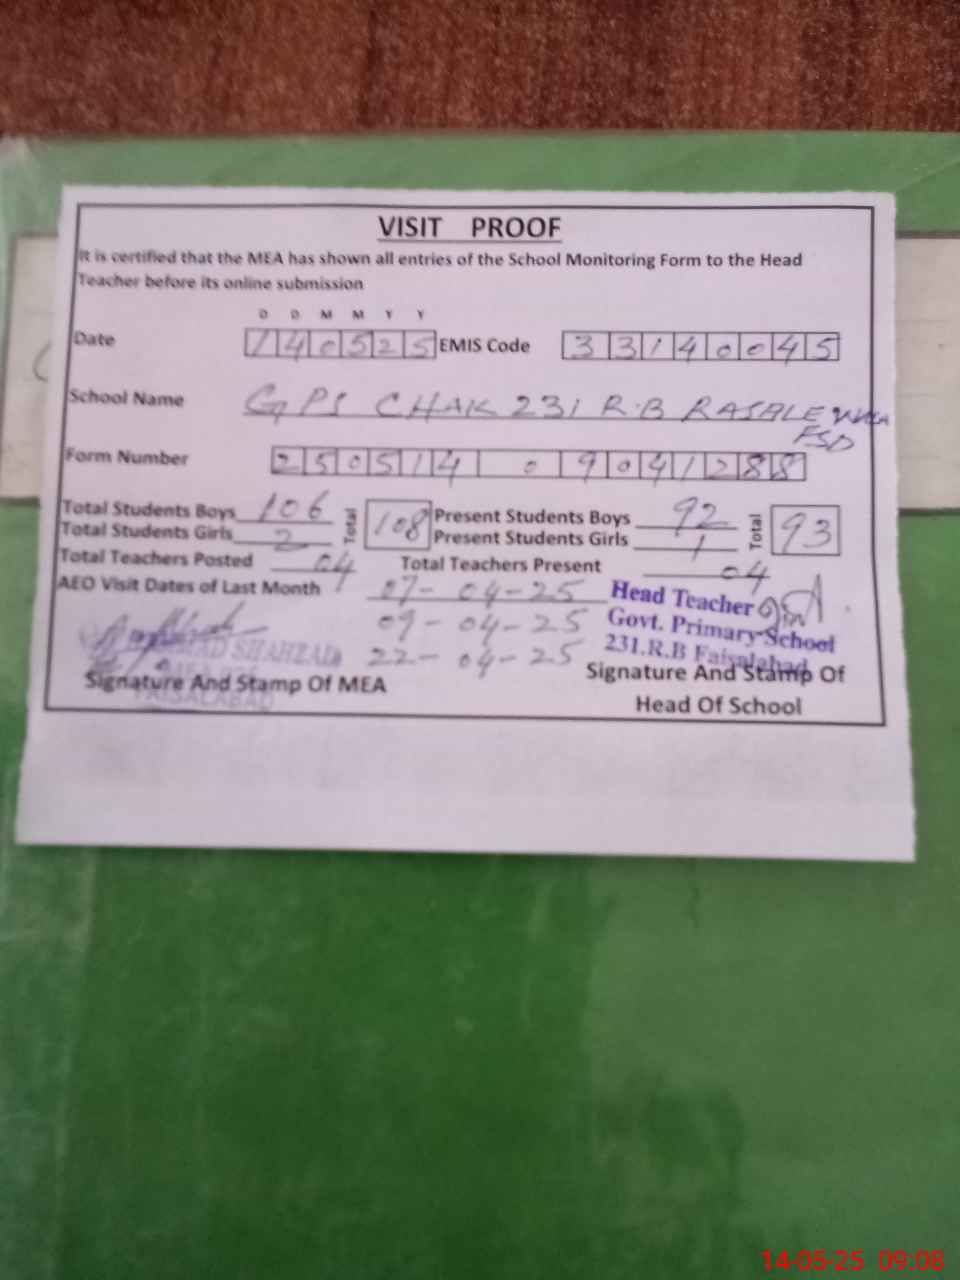 VISIT PROOF
It is certified that the MEA has shown all entries of the School Monitoring Form to the Head
Teacher before its online submission
D D M M Y Y
Date 140525 EMIS Code 33140045
School Name GPS CHAK 231 R.B RASALEWALA
FSD
Form Number 250514 0 9041288
Total Students Boys 106 Total 108 Present Students Boys 92 Total 93
Total Students Girls 2 Present Students Girls 1
Total Teachers Posted 04 Total Teachers Present 04
AEO Visit Dates of Last Month 07-04-25
09-04-25
22-04-25
Head Teacher
Govt. Primary School
231.R.B Faisalabad
SHAHZAD
FAISALABAD
Signature And Stamp Of MEA
Signature And Stamp Of
Head Of School
14-05-25 09:08